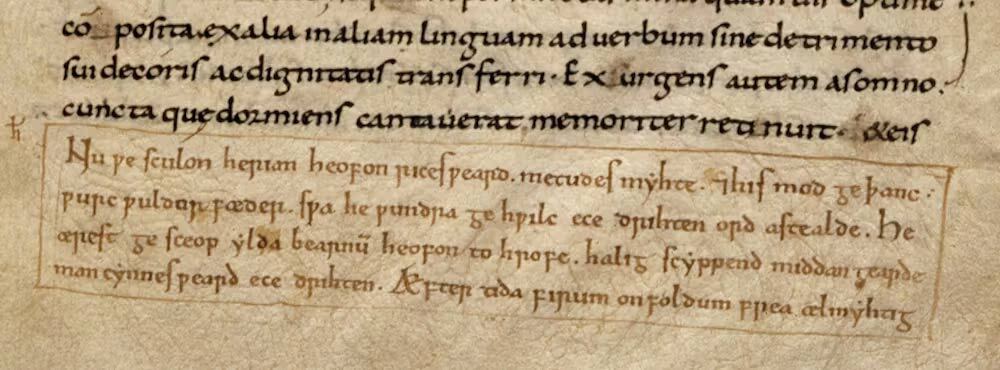 cō posita ex alia in aliam linguam ad uerbum sine detrimento
sui decoris ac dignitatis transferri. Exurgens autem a somno.
cuncta quę dormiens cantauerat memoriter retinuit. &eis
Nu ƿe sculon herian heofon rices ƿeard. metudes myhte. ⁊his mod geþanc.
ƿurc ƿuldor fæder. sƿa he ƿundra ge hƿilc ece drihten ord astealde. He
ærest ge sceop ylda bearnū heofon to hrofe. halig scyppend middan gearde
man cynnes ƿeard ece drihten. Æfter tida firum on foldum frea ælmyhtig